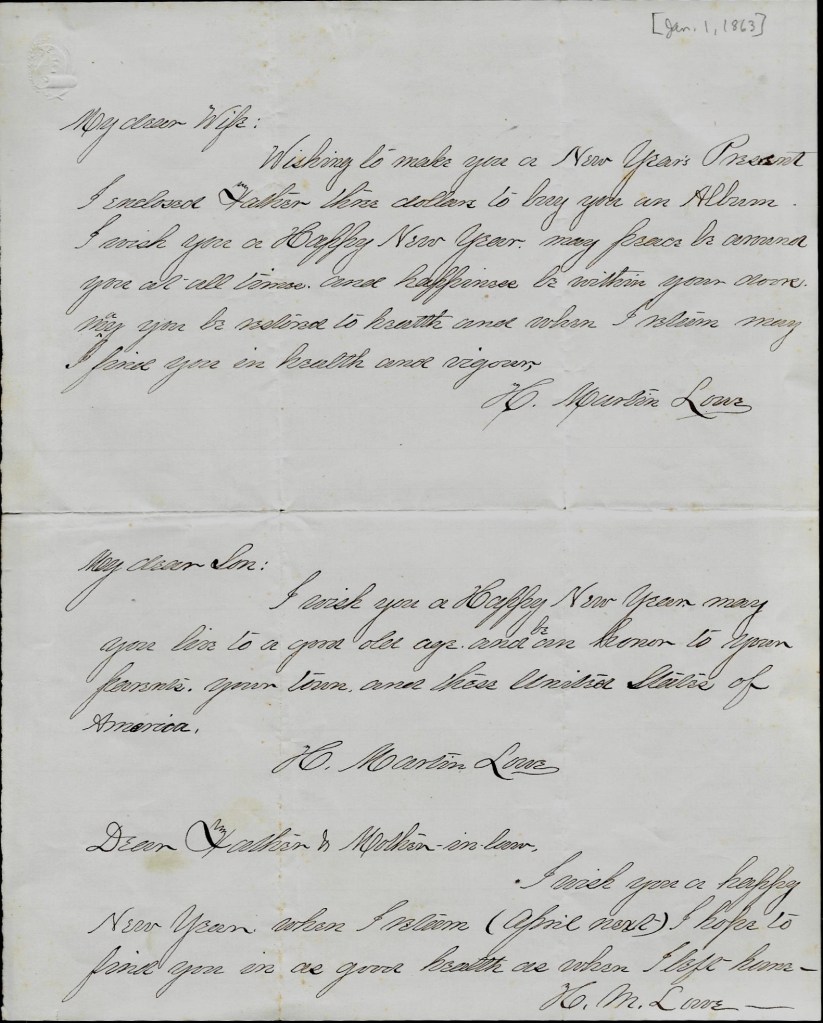 [Jan. 1, 1863]
My dear Wife:
Wishing to make you a New Year's Present
I enclosed my Father three dollars to buy you an Album.
I wish you a Happy New Year. may peace be around
you at all times. and happiness be within your door.
may you be restored to health and when I return may
I find you in health and vigour,
H. Martin Lowe
My dear Son:
I wish you a Happy New Year. may
you live to a good old age. and be an honor to your
parents. your town. and these United States of
America.
H. Martin Lowe
Dear Father & Mother-in-law,
I wish you a happy
New Year. when I return (April next) I hope to
find you in as good health as when I left home—
H. M. Lowe—